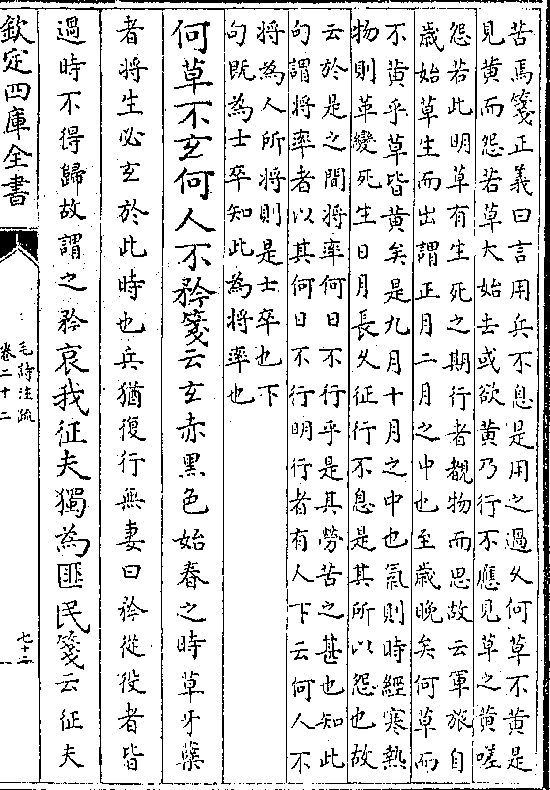 苦焉箋正義曰言用兵不息是用之過久何草不黄是
見黄而怨若草大始去或欲黄乃行不應見草之黄嗟
怨若此明草有生死之期行者覩物而思故云軍旅自
歲始草生而出謂正月二月之中也至歲晚矣何草而
不黄乎草皆黄矣是九月十月之中也氣則時經寒熱
物則革變死生日月長久征行不息是其所以怨也故
云於是之間將率何日不行乎是其勞苦之甚也知此
句謂將率者以其何日不行明行者有人下云何人不
將為人所將則是士卒也下
句既為士卒知此為將率也
何草不玄何人不矜箋云玄赤黑色始春之時草牙孽
者將生必玄於此時也兵猶復行無妻曰矜從役者皆
過時不得歸故謂之矜哀我征夫獨為匪民箋云征夫
欽定四庫全書
毛詩注疏
卷二十二
七十二